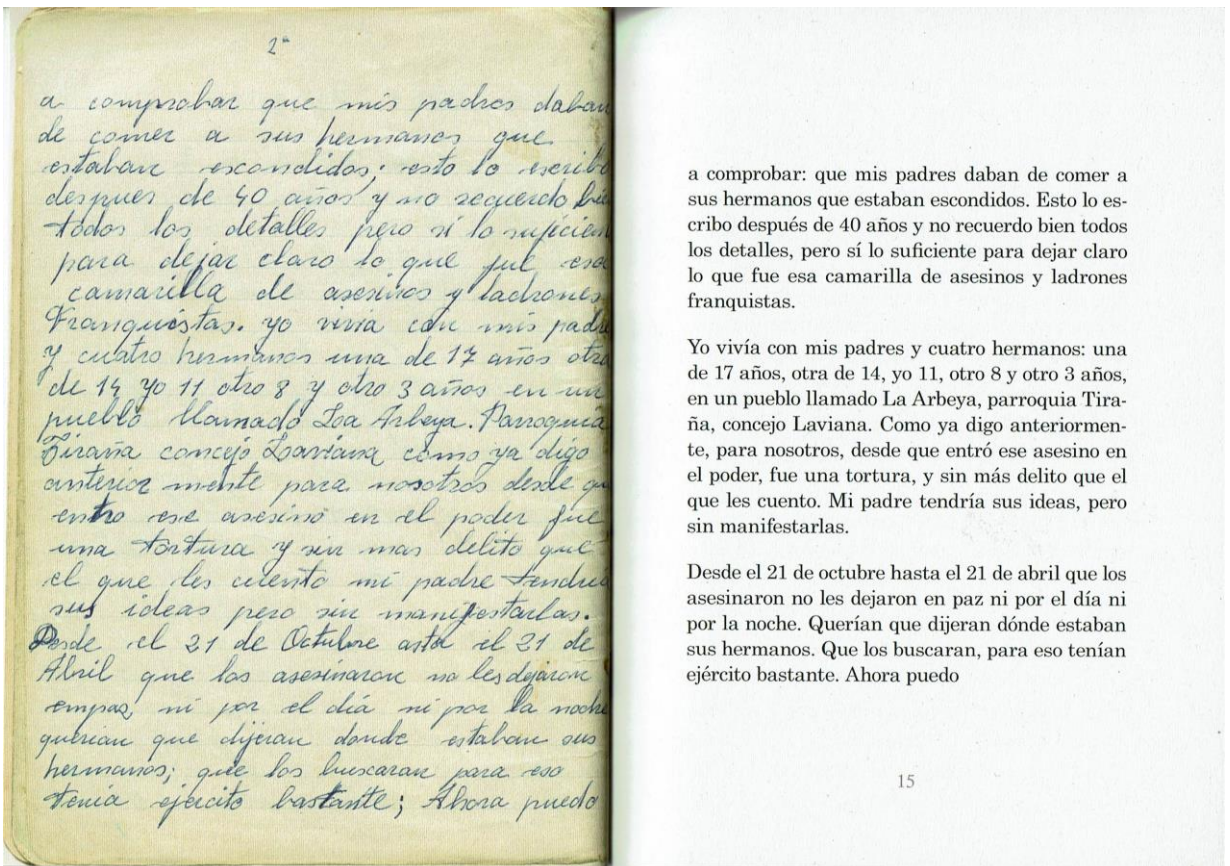 2ª
a comprobar que mis padres daban
de comer a sus hermanos que
estaban escondidos; esto lo escribo
despues de 40 años y no recuerdo bie
todos los detalles pero si lo suficien
para dejar claro lo que fue esa
camarilla de asesinos y ladrones
Franquistas. yo vivia con mis padre
y cuatro hermanos una de 17 años otra
de 14 yo 11 otro 8 y otro 3 años en un
pueblo llamado Loa Arbeya. Parroquia
Tiraña concejo Laviana como ya digo
anterior mente para nosotros desde qu
entro ese asesino en el poder fue
una tortura y sin mas delito que
el que les cuento mi padre tendria
sus ideas pero sin manifestarlas.
Desde el 21 de Octubre asta el 21 de
Abril que los asesinaron no les dejaron
empaz ni por el día ni por la noche
querian que dijeran donde estaban sus
hermanos; que los buscaran para eso
tenia ejercito bastante; Ahora puedo
a comprobar: que mis padres daban de comer a
sus hermanos que estaban escondidos. Esto lo es-
cribo después de 40 años y no recuerdo bien todos
los detalles, pero sí lo suficiente para dejar claro
lo que fue esa camarilla de asesinos y ladrones
franquistas.
Yo vivía con mis padres y cuatro hermanos: una
de 17 años, otra de 14, yo 11, otro 8 y otro 3 años,
en un pueblo llamado La Arbeya, parroquia Tira-
ña, concejo Laviana. Como ya digo anteriormen-
te, para nosotros, desde que entró ese asesino en
el poder, fue una tortura, y sin más delito que el
que les cuento. Mi padre tendría sus ideas, pero
sin manifestarlas.
Desde el 21 de octubre hasta el 21 de abril que los
asesinaron no les dejaron en paz ni por el día ni
por la noche. Querían que dijeran dónde estaban
sus hermanos. Que los buscaran, para eso tenían
ejército bastante. Ahora puedo
15